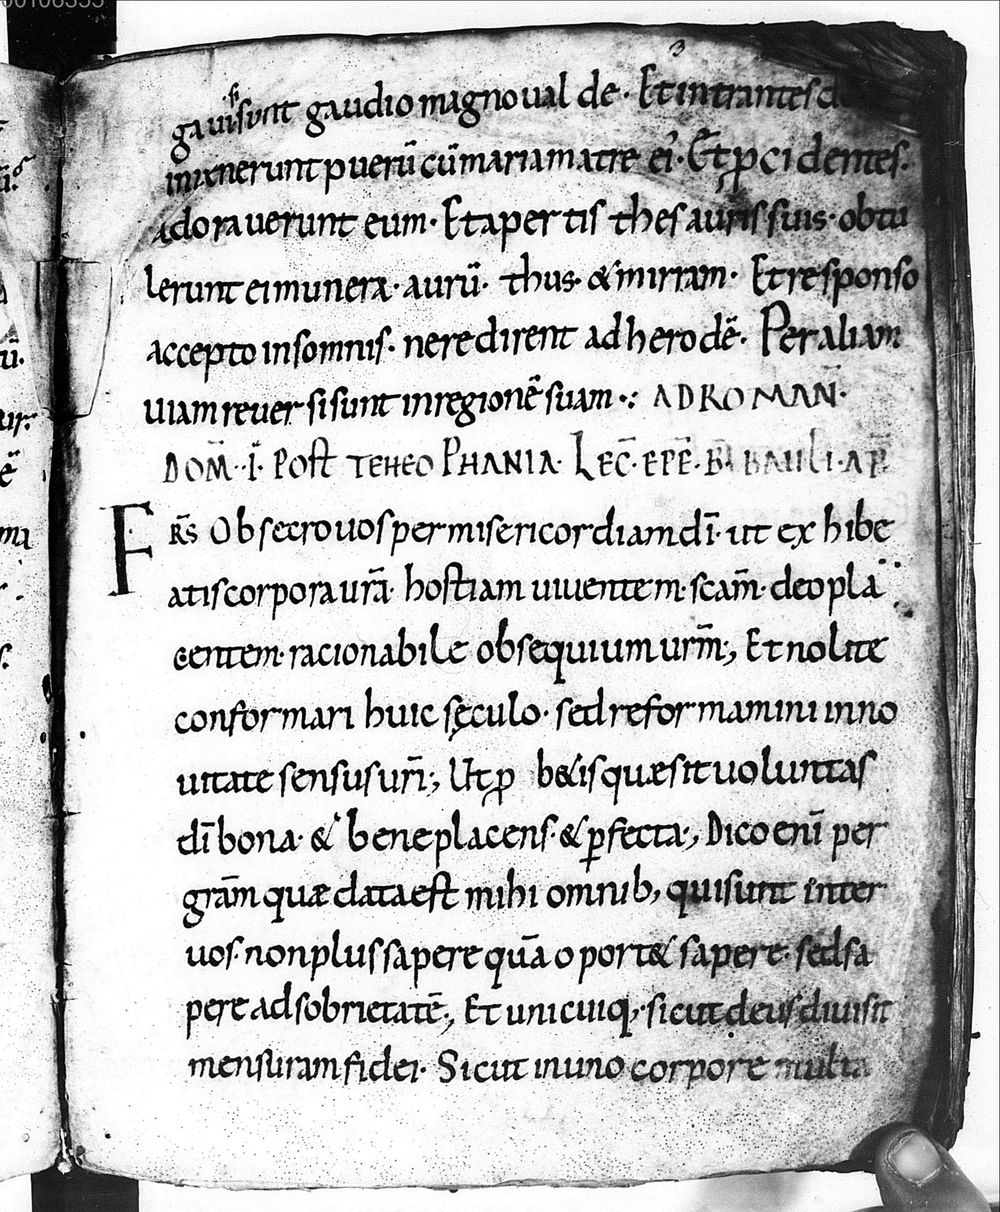 gauisi sunt gaudio magno ual de · Et intrantes
inuenerunt puerū cū maria matre ei᾽ · Et ꝓcidentes ·
adorauerunt eum · Et apertis thesauris suis · obtu
lerunt ei munera · aurū · thus · & mirram · Et responso
accepto insomnis · ne redirent ad herodē · Per aliam
uiam reuersi sunt in regionē suam · : AD ROMAN̄ ·
DOM̄ · · Ī · POST TEHEOPHANIA · LEC̄ · EPĒ · B̄ PAULI · AP̄
FR̄S Obsecro uos per misericordiam dī · ut exhibe
atis corpora ur̄a · hostiam uiuentem · scam̄ · deo pla
centem · racionabile obsequium urm̄ ·, Et nolite
conformari huic sęculo · sed reformamini in no
uitate sensus ur̄i ·, Ut ꝓb&is quæ sit uoluntas
dī bona · & beneplacens · & ꝑfecta ·, Dico enī per
grām quæ data est mihi omnib, qui sunt inter
uos · non plus sapere quā oport& sapere · sed sa
pere ad sobrietatē ·, Et unicuiq, · sicut deus diuisit
mensuram fidei · Sicut in uno corpore multa